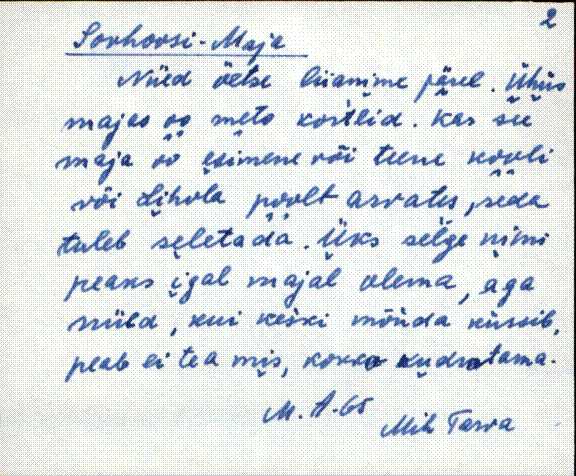 2
Sovhoosi-Maja
Nüid öetse liianime järel. Ühüs
majas oo meto kortlid. Kas sii
maja oo esimene või teene kooli
või Lihola poolt arvates, seda
tuleb seletada. Üks selge nimi
peaks igal majal olema, aga
nüid, kui keski mönda küssib,
peab ei tea mis, kokko kudrotama.
M. A. 65
Mih Tarva